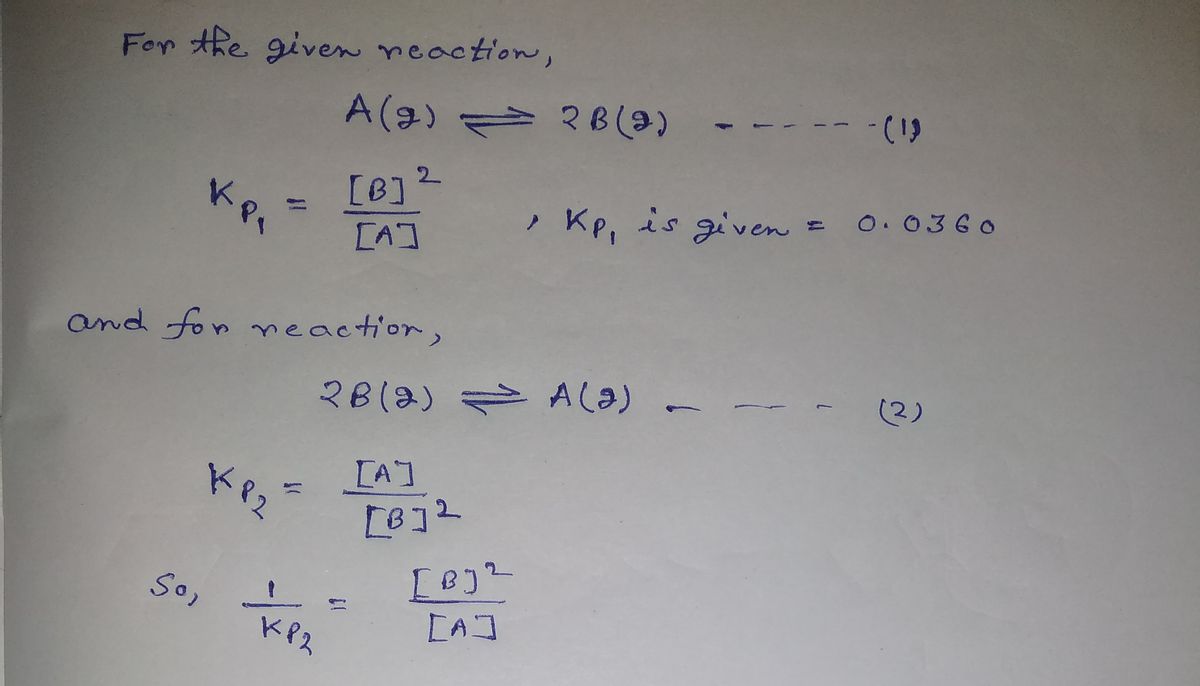 For the given reaction,
A(g) ⇌ 2B(g) ------(1)
Kp₁ = [B]² / [A] , Kp₁ is given = 0.0360
and for reaction,
2B(g) ⇌ A(g) ---- (2)
Kp₂ = [A] / [B]²
So, 1 / Kp₂ = [B]² / [A]